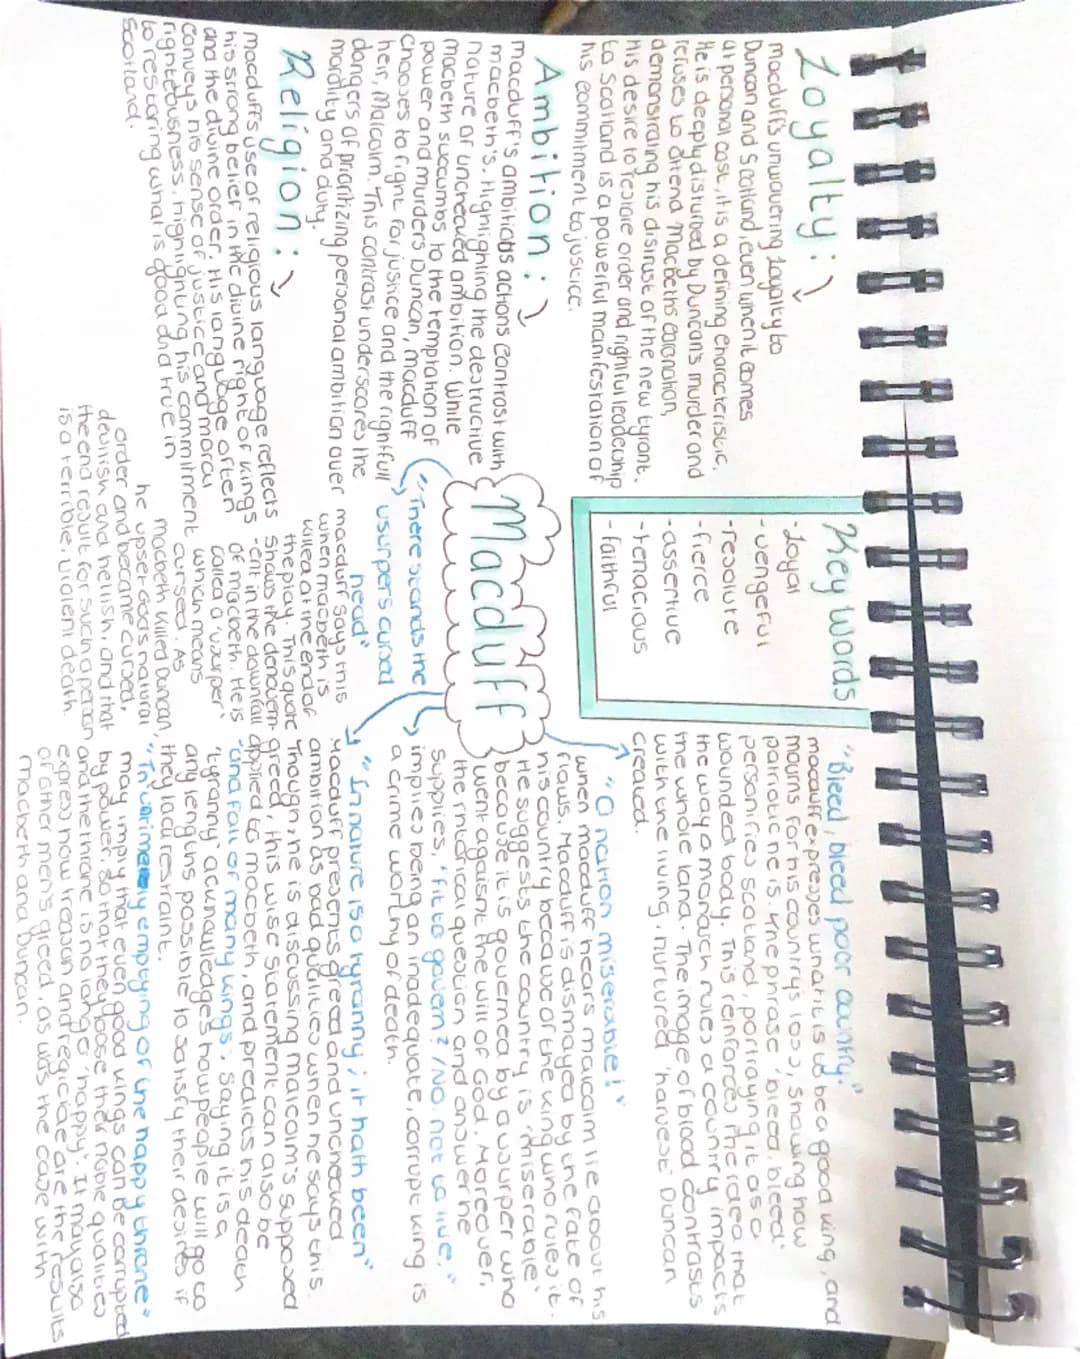 Loyalty:
macduff's unwavering loyalty to
Duncan and Scotland, even when it comes
at personal cost, it is a defining characteristic.
He is deeply disturbed by Duncan's murder and
refuses to attend Macbeths coronation,
demonstrating his distrust of the new tyrant.
His desire to restore order and rightful leadership
to Scotland is a powerful manifestation of
his commitment to justice.
Ambition:
macduff's ambitious actions contrast with
macbeth's. Highlighting the destructive
nature of unchecked ambition. While
macbeth succumbs to the temptation of
power and murders Duncan, macduff
chooses to fight for justice and the rightfull
heir, Malcolm. This contrast underscores the
dangers of prioritizing personal ambition over
morality and duty.
Religion:
macduff's use of religious language reflects
his strong belief in the divine right of kings
and the divine order. His language often
conveys his sense of justice and moral
righteousness, highlighting his commitment
to restoring what is good and true in
Scotland.
Key words
- Loyal
- vengeful
- resolute
- fierce
- assertive
- tenacious
- faithful
Macduff
"There stands the
usurpers cursed
head"
macduff says this
when macbeth is
killed at the end of
the play. This quote
shows the denouem-
-ent in the downfall
of macbeth. He is
called a 'usurper'
which means
cursed. As
macbeth killed Duncan,
he upset God's natural
order and became cursed,
devilish and hellish, and that
the end result for such a person
is a terrible, violent death.
"Bleed, bleed poor country."
macduff expresses what it is to be a good king, and
mourns for his countrys loss, showing how
patriotic he is. The phrase 'bleed, bleed'
personifies Scotland, portraying it as a
wounded body. This reinforces the idea that
the way a monarch rules a country impacts
the whole land. The image of blood contrasts
with the living, nurtured 'harvest' Duncan
created.
"O nation miserable!"
when macduff hears malcolm lie about his
flaws, Macduff is dismayed by the fate of
his country because of the king who rules it.
He suggests the country is 'miserable'
because it is governed by a usurper who
went against the will of God. Moreover,
the rhetorical question and answer he
supplies, "fit to govern? / No. not to live."
implies being an inadequate, corrupt king is
a crime worthy of death.
"In nature is a tyranny; it hath been"
Macduff presents greed and unchecked
ambition as bad qualities when he says this.
Though, he is discussing malcolm's supposed
greed, this wise statement can also be
applied to macbeth, and predicts his death
"and fall of many kings". Saying it is a
'tyranny' acknowledges how people will go to
any lengths possible to satisfy their desires if
they lack restraint.
"Th'untimely emptying of the happy throne"
may imply that even good kings can be corrupted
by power, so that they loose their noble qualities
and the throne is no longer 'happy'. It may also
express how treason and regicide are the results
of other men's greed, as was the case with
macbeth and Duncan.